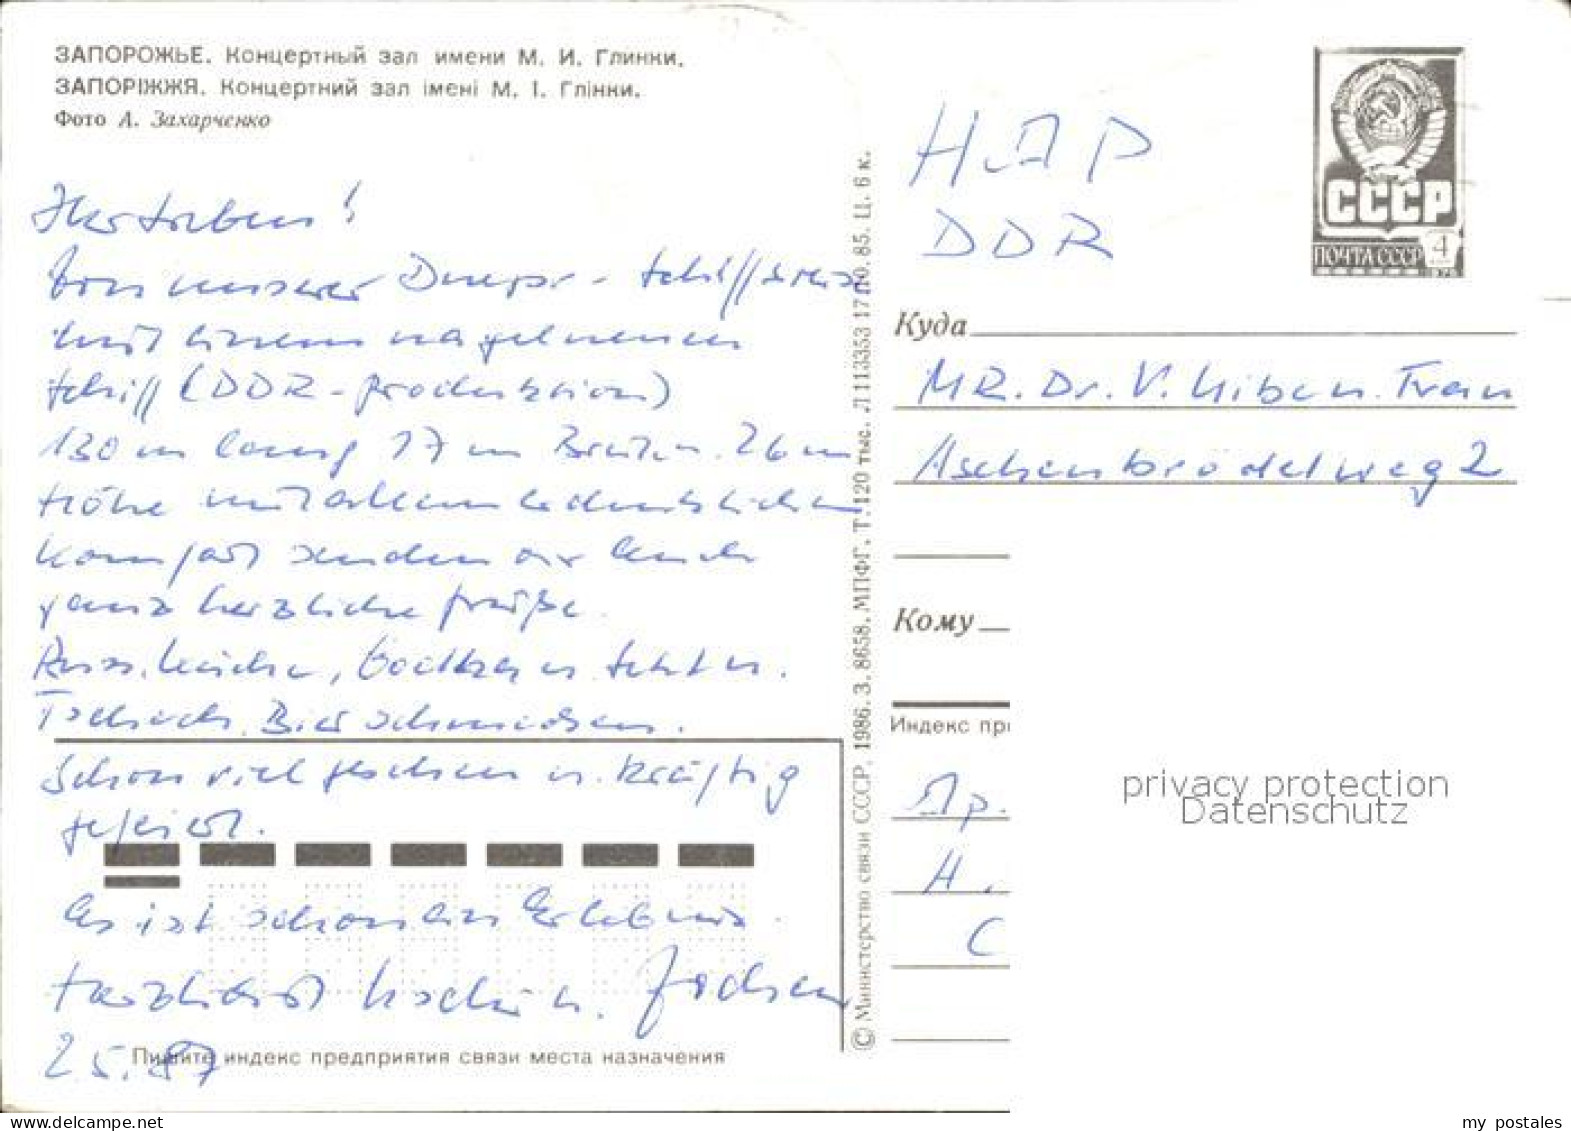 ЗАПОРОЖЬЕ. Концертный зал имени М. И. Глинки.
ЗАПОРІЖЖЯ. Концертний зал імені М. І. Глінки.
Фото А. Захарченко
Ihr Lieben!
Von unserer Dnepr-Schiffsreise
mit einem nagelneuen
Schiff (DDR-Produktion)
130 m lang 17 m Breite u. 26 m
Höhe mit allem
Komfort senden wir Euch
ganz herzliche Grüße.
Russ. Küche, Wodka u. Sekt u.
Tschech. Bier schmecken.
Schon viel gesehen u. kräftig
gefeiert.
Es ist schon ein Erlebnis.
Herzlichst u. Jochen
2.5.87
Пишите индекс предприятия связи места назначения
© Министерство связи СССР, 1986. З. 8658. МПФГ. Т. 120 тыс. Л 113353 17.10.85. Ц. 6 к.
НДР
DDR
СССР
ПОЧТА СССР 4
Куда
MR. Dr. V. Frau
Aschenbrödelweg 2
Кому
Индекс пр
Др.
Н.
С
privacy protection
Datenschutz
www.delcampe.net
my_postales